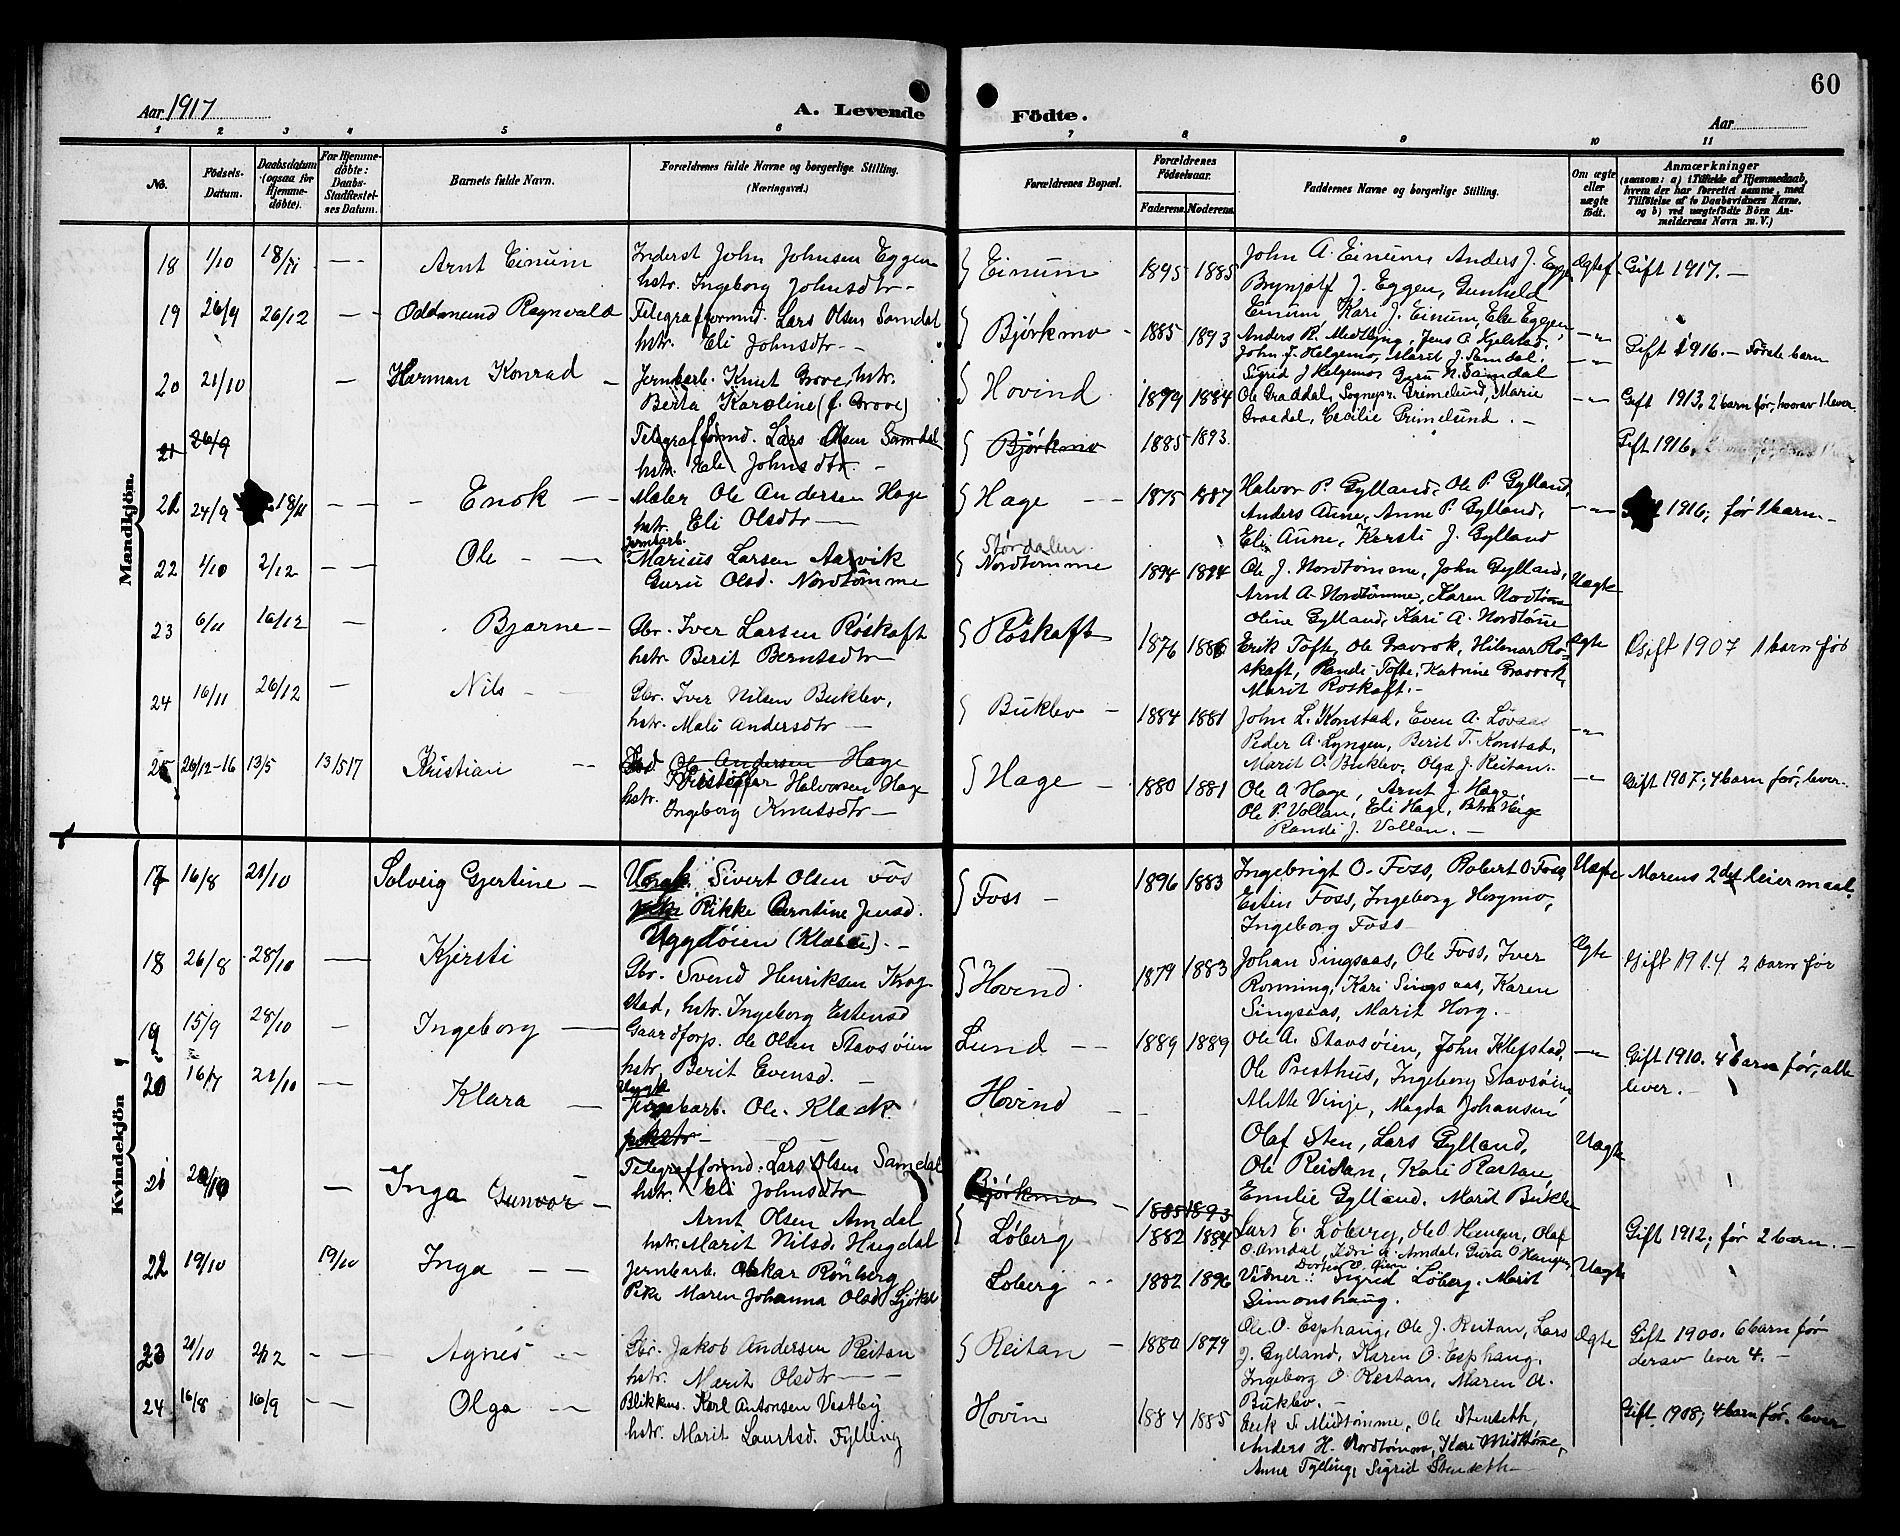 60
Aar 1917 A. Levende Födte. Aar
1 2 3 4 5 6 7 8 9 10 11
No. Födsels-Datum. Daabsdatum (ogsaa for Hjemmedöbte). For Hjemmedöbte: Daabs-Stadfæstelses Datum. Barnets fulde Navn. Forældrenes fulde Navne og borgerlige Stilling. (Næringsvei.) Forældrenes Bopæl. Forældrenes Födselsaar. Faderens. Moderens. Faddernes Navne og borgerlige Stilling. Om ægte eller uægte födt. Anmærkninger
(saasom: a) i Tilfælde af Hjemmedaab,
hvem der har forrettet samme, med
Tilföielse af to Daabsvidners Navne,
og b) ved uægtefödte Börn Anmelderens Navn m. V.)
Mandkjön.
18 1/10 18/11 Arnt Einum Inderst John Johnsen Eggen Einum 1895 1885 John A. Einum, Anders J. Eggen Ægtef. Gift 1917.
hstr. Ingeborg Johnsdtr. Brynjolf J. Eggen, Gunhild
Einum Kari J. Einum, Eggen
19 26/9 26/12 Oddmund Ragnvald Telegrafformd. Lars Olsen Samdal Bjørkmo 1885 1893 Anders R. Medlbjng, Jens A. Kjelstad, Gift 1916 – Første barn
hstr. Eli Johnsdtr. John J. Helgemo, Marit J. Samdal,
Sigrid J Helgemo Guru N. Samdal
20 21/10 Herman Konrad Jernbarb. Knut Grove, hstr. Hovind 1879 1884 Ole Graadal, Sognepr. Grimelund, Marie Gift 1913. 2 barn før, hvorav 1 lever.
Berta Karoline (f. Grove) Graadal, Cecilie Grimelund.
21 26/9 Telegrafformd. Lars Olsen Samdal Bjørkmo 1885 1893. Gift 1916.
hstr. Eli Johnsdtr.
21 24/9 18/11 Enok Maler Ole Andersen Hage Hage 1875 1887 Halvor P. Gylland, Ole P. Gylland, 1916; før 1 barn
hstr. Eli Olsdtr Anders Aune, Anne P. Gylland,
Eli Aune, Kersti J. Gylland
22 1/10 2/12 Ole Jernbarb. Marius Larsen Aasvik Størdalen 1894 1894 Ole J. Nordtømme, John Gylland, Uægte
Guru Olsd. Nordtømme Nordtømme Arnt A. Nordtømme, Karen Nordtømme
Oline Gylland, Kari A. Nordtømme
23 6/11 16/12 Bjarne Gbr. Iver Larsen Røskaft Røskaft 1876 1886 Erik Tofte, Ole Gravrok, Hilmar Rø- Ægte Gift 1907 1 barn før
hstr. Berit Berntsdtr skaft, Randi Tofte, Katrine Gravrok,
Marit Røskaft.
24 16/11 26/12 Nils Gbr. Iver Nilsen Buklev, Buklev 1884 1881 John L. Konstad, Even A. Løvaas
hstr. Mali Andersdtr Peder A. Lyngen, Berit T. Konstad,
Marit O. Buklev, Olga J. Reitan.
25 26/12-16 13/5 13/5 17 Kristian Ole Andersen Hage Hage 1880 1881 Ole A Hage, Arnt J. Hage, Gift 1907; 4 barn før, lever.
Kristoffer Halvorsen Hage Ole P. Vollan, Eli Hage, Petra Hage
hstr. Ingeborg Knutsdtr Randi J. Vollan.
Kvindekjön
17 16/8 21/10 Solveig Gjertine Ungk. Sivert Olsen Fos Foss 1896 1883 Ingebrigt O. Foss, Robert O Foss, Uægte Morens 2det leiermaal
pike Rikke Berntine Jensd. Esten Foss, Ingeborg Horgmo,
Uggdøien (Klæbu). Ingeborg Foss
18 26/8 28/10 Kjersti Gbr. Svend Henriksen Krog Hovind 1879 1883 Johan Singsaas, Ole Foss, Iver Ægte Gift 1914 2 barn før
stad, hstr. Ingeborg Estensd Rønning, Kari Singsaas, Karen
Singsaas, Marit Horg.
19 15/9 28/10 Ingeborg Gaardforp. Ole Olsen Stavsøien Lund 1889 1889 Ole A. Stavsøien, John Klefstad, Gift 1910. 4 barn før, alle
hstr. Berit Evensd. Ole Presthus, Ingeborg Stavsøien lever.
Alette Vinje, Magda Johansen
20 16/7 21/10 Klara Ungk. jernbarb. Ole Klack Hovind Olaf Sten, Lars Gylland, Uægte
Ole Reitan, Kari Restan,
Emilie Gylland. Marit Bukle
21 20/10 Inga Gunvor Telegrafformd. Lars Olsen Samdal Bjørkmo 1885 1893
hstr. Eli Johnsdtr
Arnt Olsen Amdal Løberg 1882 1884 Lars E. Løberg, Ole O Haugen, Olaf Gift 1912; før 2 barn.
hstr. Marit Nilsd. Hugdal O. Amdal,
22 19/10 19/10 Inga Jernbarb. Oskar Rønberg Løberg 1882 1896 Vidner: Sigrid Løberg. Marit Uægte
Pike Maren Johanna Olsd. Simonshaug.
23 21/10 2/12 Agnes Gbr. Jakob Andersen Reitan Reitan 1880 1879 Ole. O. Esphaug, Ole J. Reitan, Lars Ægte Gift 1900. 6 barn før
hstr. Marit Olsdtr J. Gylland, Karen O. Esphaug, derav lever 4.
Ingeborg O. Restan, Maren A.
Buklev.
24 16/8 16/9 Olga Blikkens. Karl Antonsen Vestby Hovin 1884 1885 Eerik S. Midtømme, Ole Stenseth, Gift 1908, 4 barn før, lever
hstr. Marit Lauritsd. Fylling Anders H. Nordtømme, Kari Midttømme,
Anne Fylling, Sigrid Stenseth